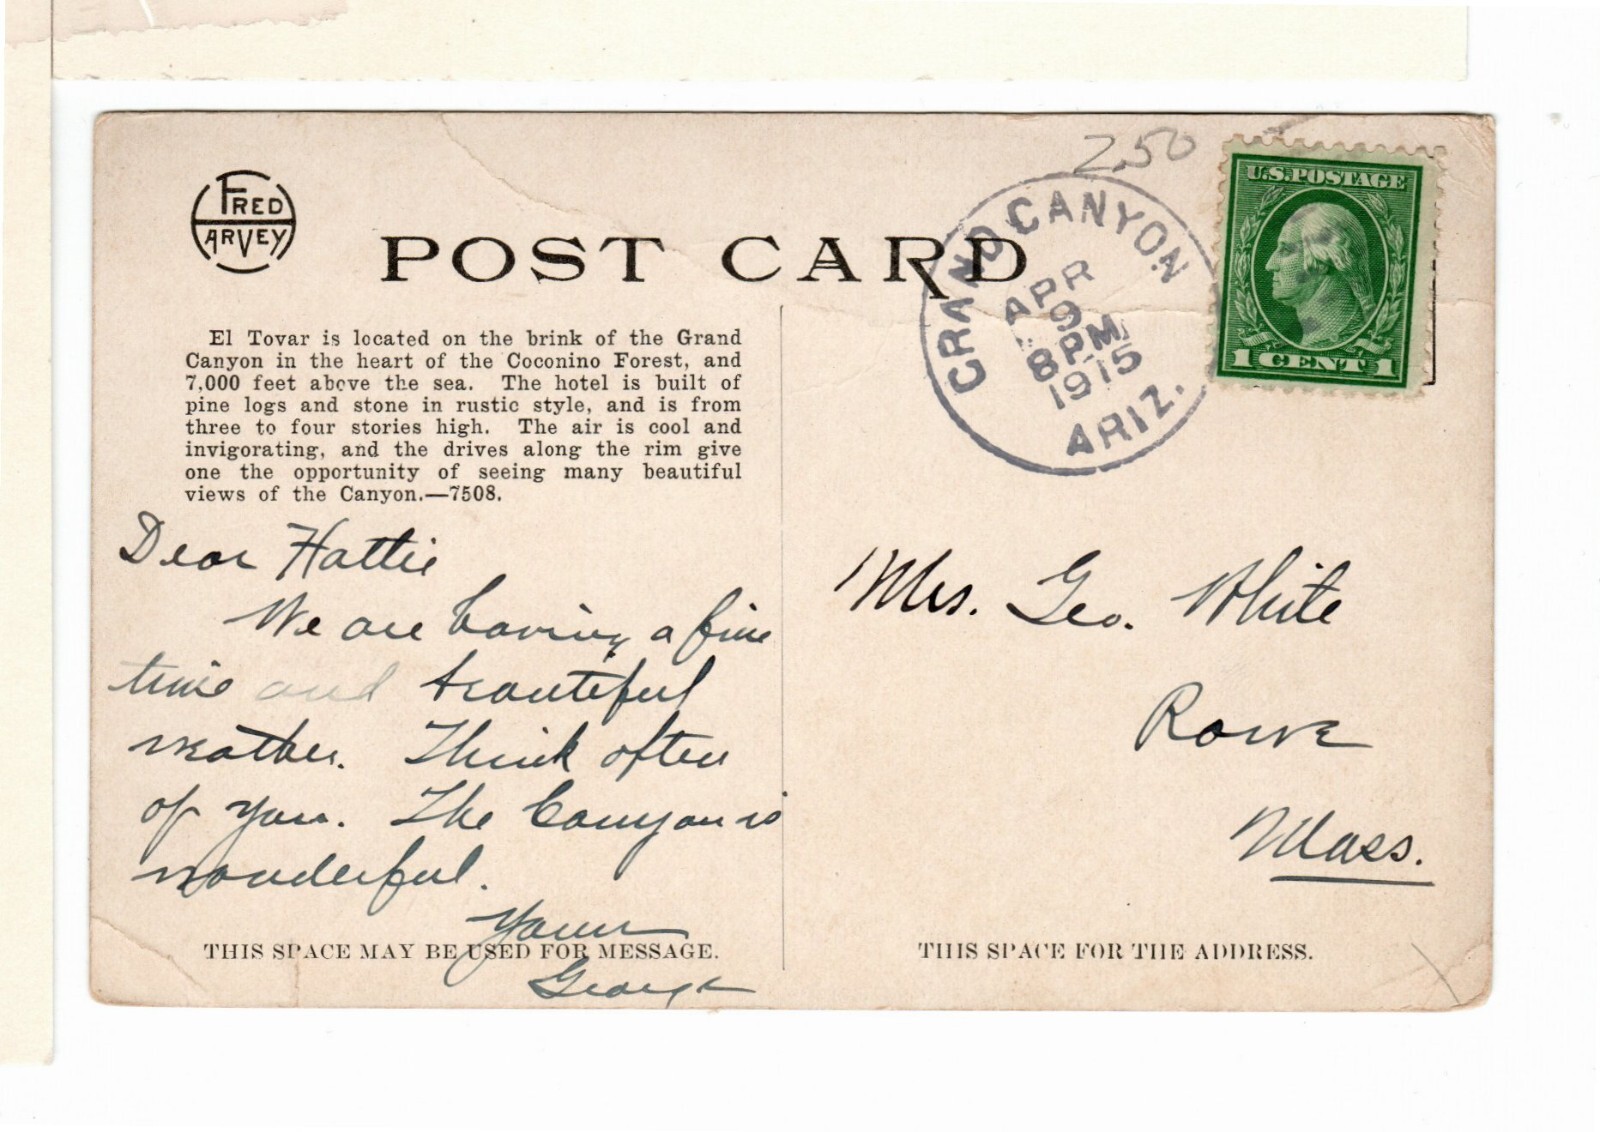 250
FRED HARVEY
POST CARD
GRAND CANYON
APR
9
8 PM
1915
ARIZ.
U.S. POSTAGE
1 CENT 1
El Tovar is located on the brink of the Grand
Canyon in the heart of the Coconino Forest, and
7,000 feet above the sea. The hotel is built of
pine logs and stone in rustic style, and is from
three to four stories high. The air is cool and
invigorating, and the drives along the rim give
one the opportunity of seeing many beautiful
views of the Canyon.—7508.
Dear Hattie
We are having a fine
time and beautiful
weather. Think often
of you. The Canyon is
wonderful.
Yours
George
THIS SPACE MAY BE USED FOR MESSAGE.
Mrs. Geo. White
Rowe
Mass.
THIS SPACE FOR THE ADDRESS.